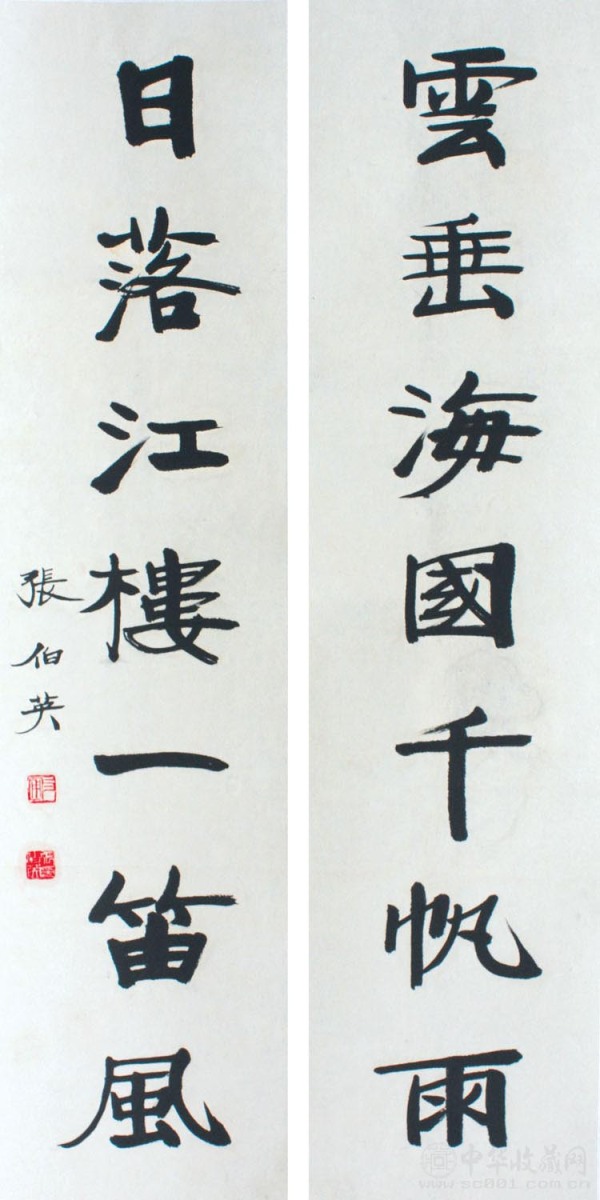 雲垂海國千帆雨
日落江樓一笛風
張伯英
中华收藏网
www.sc001.com.cn